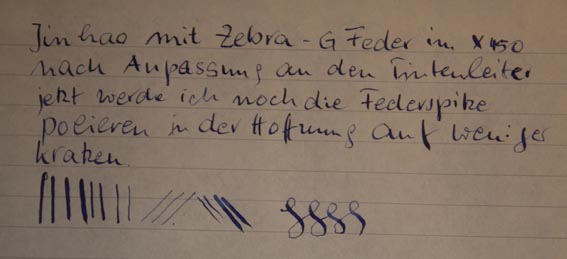 Jinhao mit Zebra-G Feder im X450
nach Anpassung an den Tintenleiter
jetzt werde ich noch die Federspitze
polieren in der Hoffnung auf weniger
kratzen.